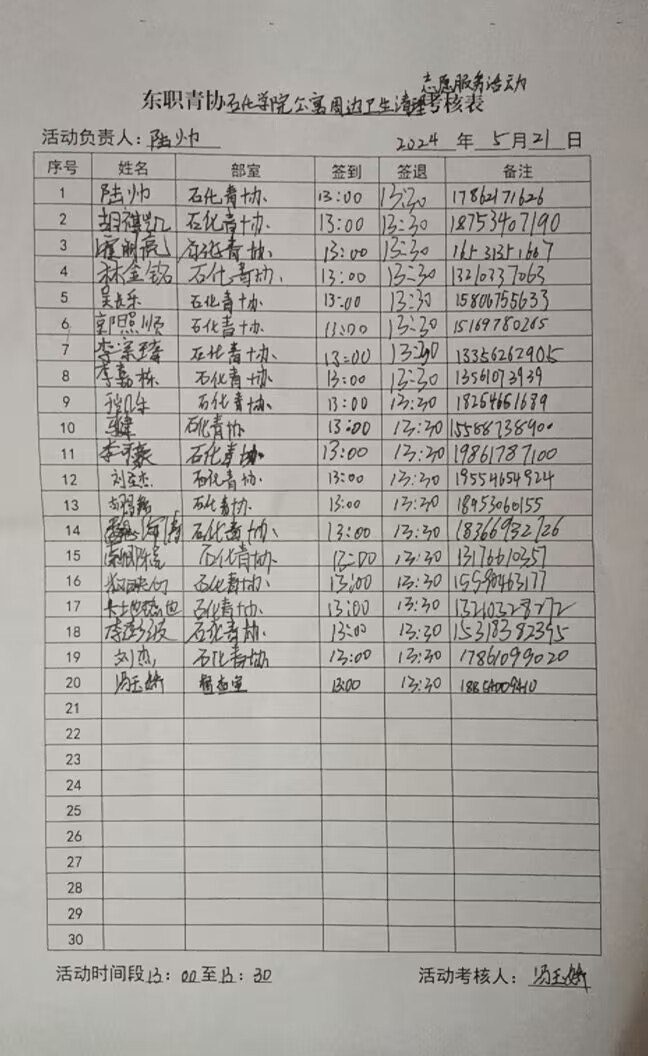 志愿服务活动
东职青协石化学院公寓周边卫生清理考核表
活动负责人：陆帅 2024 年 5 月 21 日
序号 姓名 部室 签到 签退 备注
1 陆帅 石化青协 13:00 13:30 17862171626
2 胡祺凯 石化青协 13:00 13:30 18753407190
3 石化青协 13:00 13:30
4 林金铭 石化青协 13:00 13:30 13210337063
5 吴长乐 石化青协 13:00 13:30 15806755633
6 郭照顺 石化青协 13:00 13:30 15169780265
7 石化青协 13:00 13:30 13356262905
8 李嘉栋 石化青协 13:00 13:30 13561073939
9 石化青协 13:00 13:30 18264661689
10 石化青协 13:00 13:30
11 石化青协 13:00 13:30 19861787100
12 石化青协 13:00 13:30 19554654924
13 石化青协 13:00 13:30 18953060155
14 石化青协 13:00 13:30 18366932726
15 石化青协 13:00 13:30 13176610357
16 石化青协 13:00 13:30 15990463177
17 石化青协 13:00 13:30 13210328272
18 石化青协 13:00 13:30 15318382395
19 刘杰 石化青协 13:00 13:30 17861099020
20 冯玉娇 督查室 13:00 13:30
21
22
23
24
25
26
27
28
29
30
活动时间段 13：00 至 13：30 活动考核人：冯玉娇